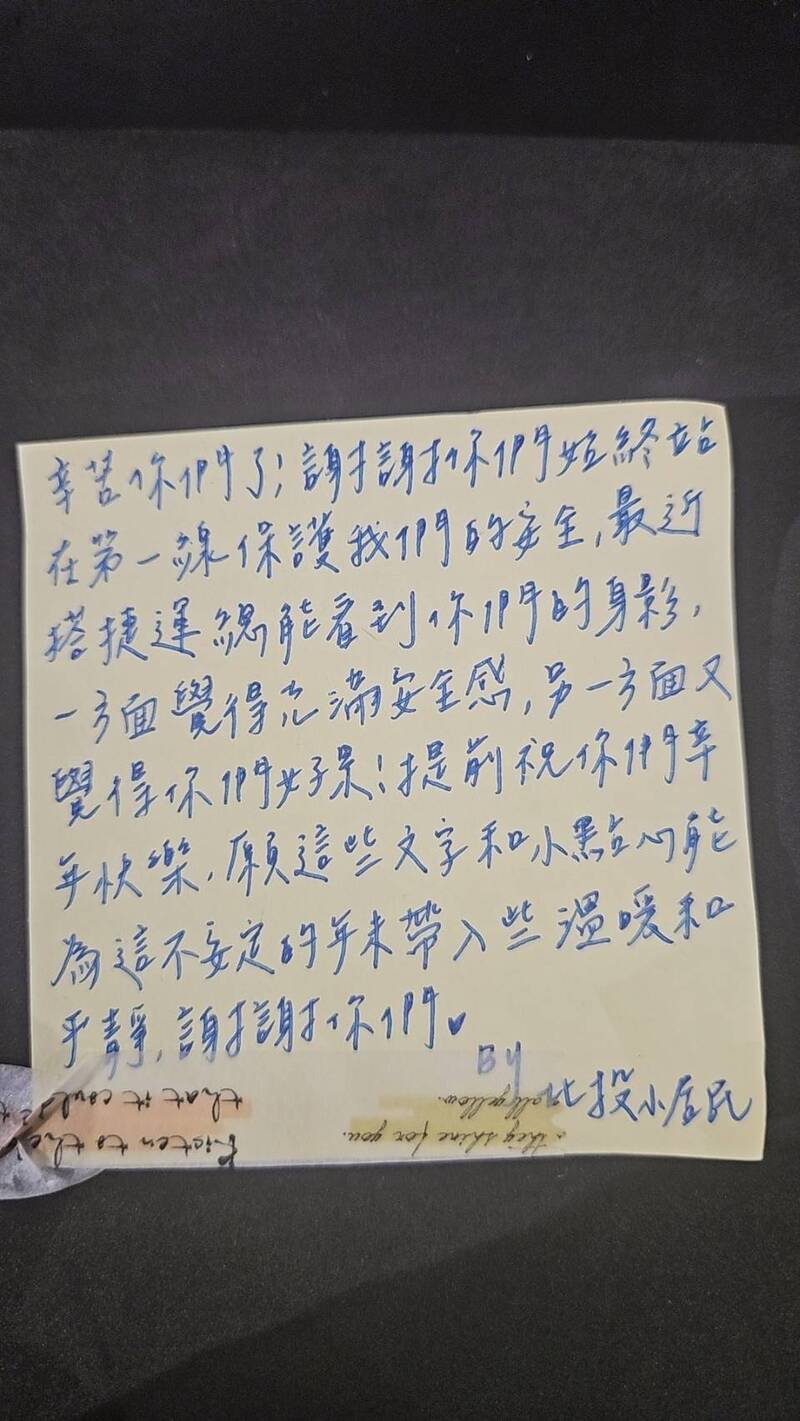 辛苦你們了!謝謝你們始終站
在第一線保護我們的安全,最近
搭捷運總能看到你們的身影,
一方面覺得充滿安全感,另一方面又
覺得你們好累!提前祝你們辛
年快樂,願這些文字和小點心能
為這不安定的年末帶入些溫暖和
平靜,謝謝你們。
BY 北投小居民
that it could
all yellow.
Listen to the
they shine for you.